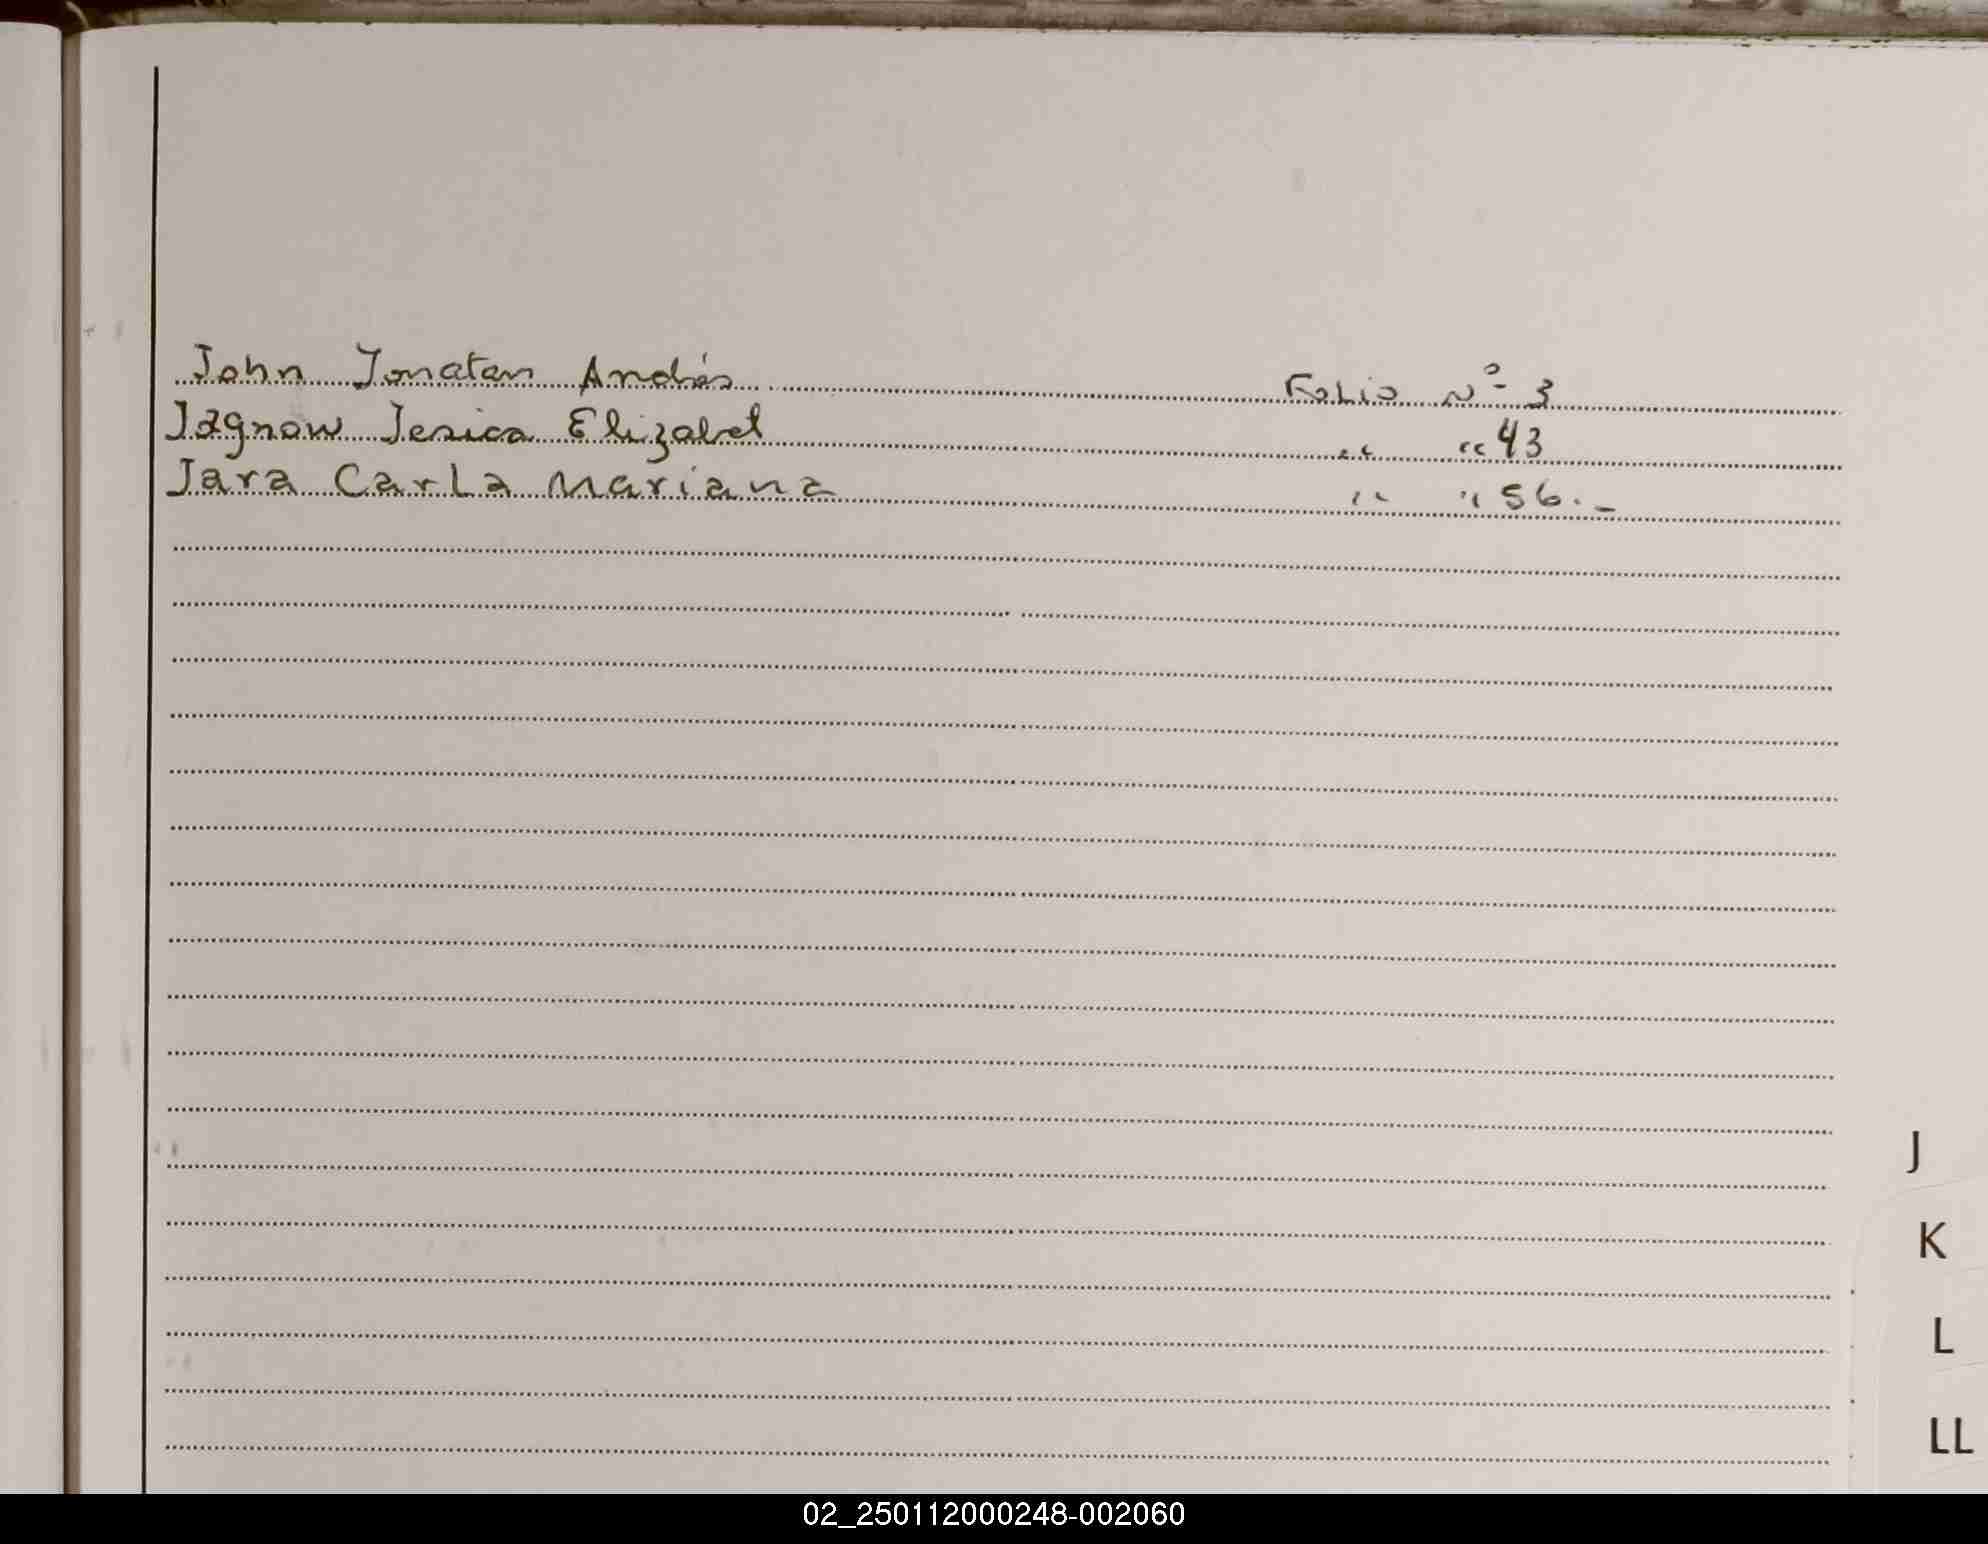 John Jonatan Andrés Folio Nº 3
Jagnow Jesica Elizabet " " 43
Jara Carla Mariana " " 56.-
J
K
L
LL
02_250112000248-002060